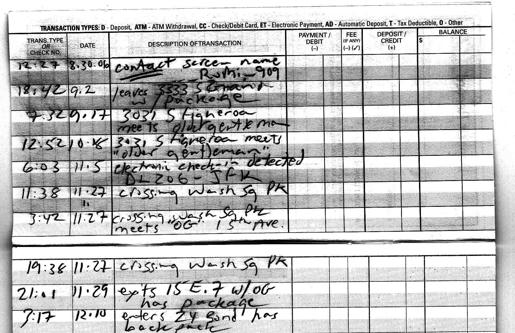 TRANSACTION TYPES: D - Deposit, ATM - ATM Withdrawal, CC - Check/Debit Card, ET - Electronic Payment, AD - Automatic Deposit, T - Tax Deductible, O - Other
TRANS. TYPE OR CHECK NO. DATE DESCRIPTION OF TRANSACTION PAYMENT / DEBIT (–) FEE (IF ANY) (–) (✓) DEPOSIT / CREDIT (+) BALANCE
$ $
12:27 8.30.06 contact screen name
909
18:42 9.2 leaves 3333 S
w/ package
7:32 9.17 3031 S Figueroa
meets older gentleman
12:52 3031 S Figueroa meets
"older gentleman"
6:03 11.5 electronic check-in detected
DL 206 - JFK
11:38 11.27 crossing Wash Sq Pk
"
3:42 11.27 crossing Wash Sq Pk
meets "OG" 15th Ave.
19:38 11.27 crossing Wash Sq Pk
21:01 11.29 exits 15 E. 7 w/OG
has package
3:17 12.10 enters 24 Bond has
back pack